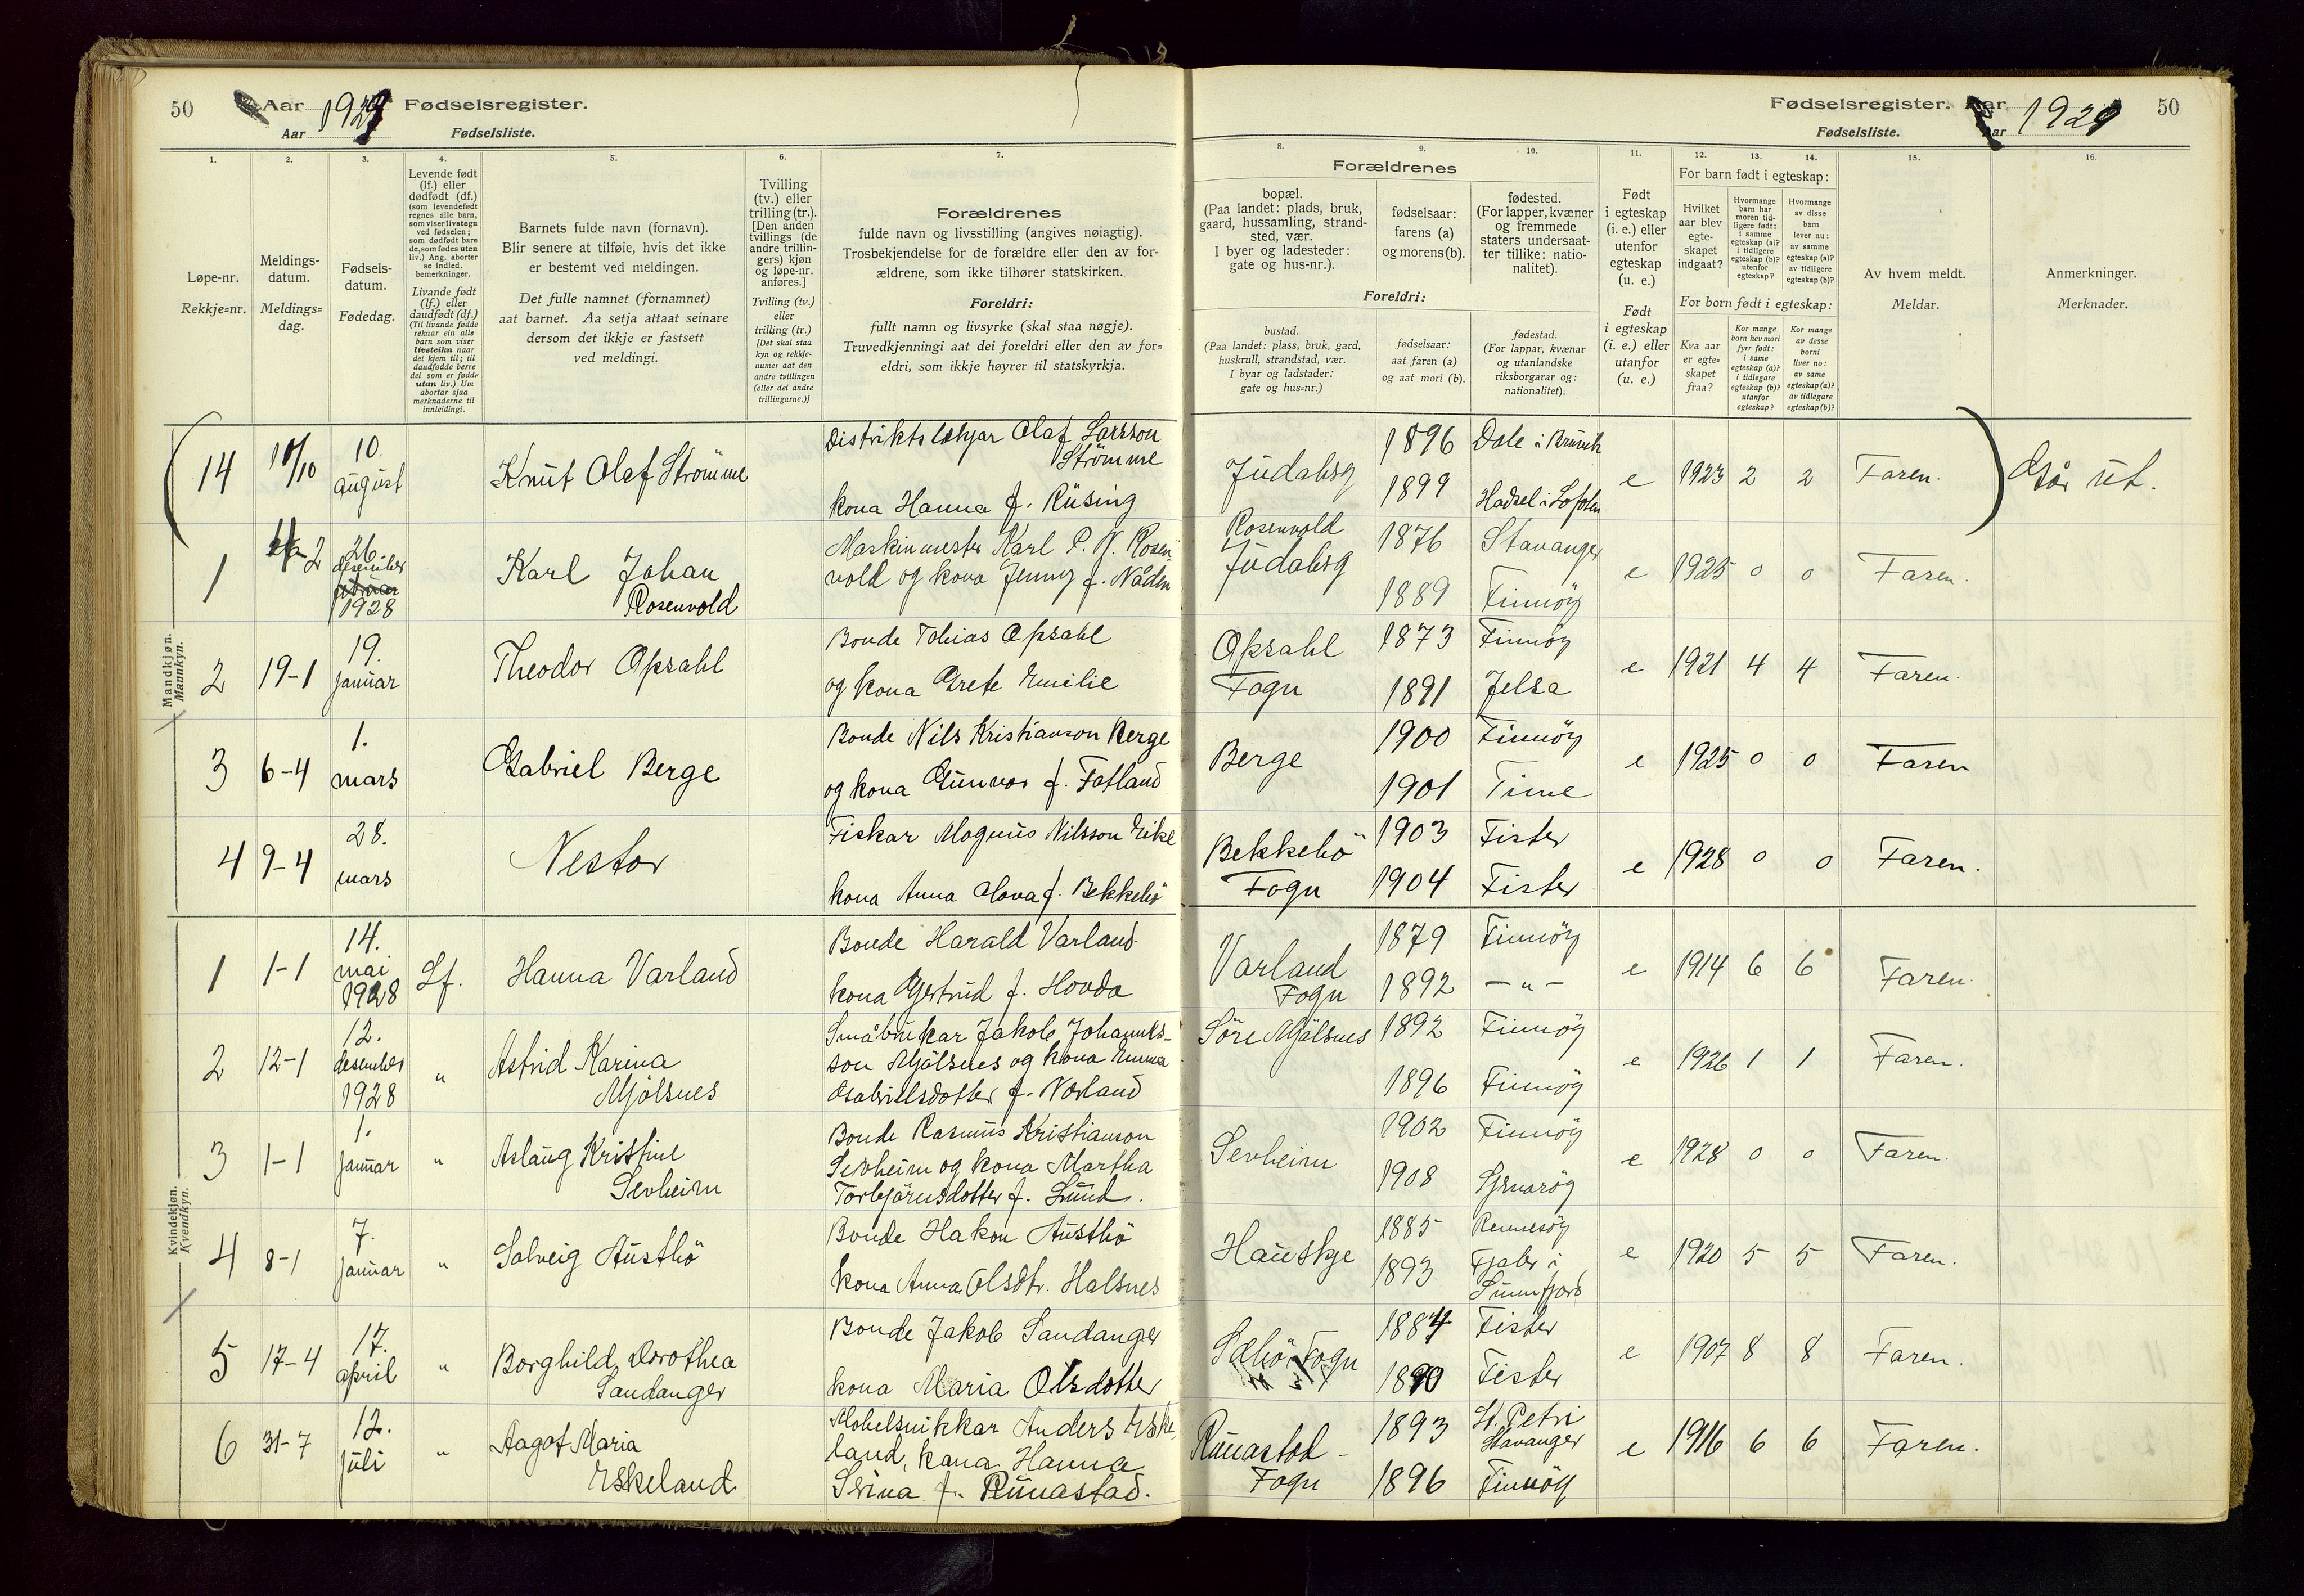 50
Aar
1929
Fødselsregister.
Aar
Fødselsliste.
Fødselsregister. Aar
Fødselsliste. Aar 1929
50
1.
2.
3.
4.
5.
6.
7.
8.
9.
10.
11.
12.
13.
14.
15.
16.
Løpe-nr.
Rekkje=nr.
Meldings-
datum.
Meldings=
dag.
Fødsels-
datum.
Fødedag.
Levende født
(lf.) eller
dødfødt (df.)
(som levendefødt
regnes alle barn,
som viser livstegn
ved fødselen;
som dødfødt bare
de, som fødes uten
liv.) Ang. aborter
se indled.
bemerkninger.
Livande født
(lf.) eller
daudfødt (df.)
(Til livande fødde
reknar ein alle
barn som viser
livsteikn naar
dei kjem til; til
daudfødde berre
dei som er fødde
utan liv.) Um
abortar sjaa
merknaderne til
innleidingi.
Barnets fulde navn (fornavn).
Blir senere at tilføie, hvis det ikke
er bestemt ved meldingen.
Det fulle namnet (fornamnet)
aat barnet. Aa setja attaat seinare
dersom det ikkje er fastsett
ved meldingi.
Tvilling
(tv.) eller
trilling (tr.).
[Den anden
tvillings (de
andre trillin-
gers) kjøn
og løpe-nr.
anføres.]
Tvilling (tv.)
eller
trilling (tr.)
[Det skal staa
kyn og rekkje-
numer aat den
andre tvillingen
(eller dei andre
trillingarne.)]
Forældrenes
fulde navn og livsstilling (angives nøiagtig).
Trosbekjendelse for de forældre eller den av for-
ældrene, som ikke tilhører statskirken.
Foreldri:
fullt namn og livsyrke (skal staa nøgje).
Truvedkjenningi aat dei foreldri eller den av for=
eldri, som ikkje høyrer til statskyrkja.
Forældrenes
bopæl.
(Paa landet: plads, bruk,
gaard, hussamling, strand-
sted, vær.
I byer og ladesteder:
gate og hus-nr.).
fødselsaar:
farens (a)
og morens (b).
fødested.
(For lapper, kvæner
og fremmede
staters undersaat-
ter tillike: natio-
nalitet).
Foreldri:
bustad.
(Paa landet: plass, bruk, gard,
huskrull, strandstad, vær.
I byar og ladstader:
gate og hus=nr.)
fødselsaar:
aat faren (a)
og aat mori (b).
fødestad.
(For lappar, kvænar
og utanlandske
riksborgarar og:
nationalitet).
Født
i egteskap
(i. e.) eller
utenfor
egteskap
(u. e.)
Født
i egteskap
(i. e.) eller
utanfor
(u. e.)
For barn født i egteskap:
Hvilket
aar blev
egte-
skapet
indgaat?
Hvormange
barn har
moren tid-
ligere født:
i samme
egteskap (a)?
i tidligere
egteskap (b)?
utenfor
egteskap?
Hvormange
av disse
barn
lever nu:
av samme
egteskap (a)?
av tidligere
egteskap (b)?
For born født i egteskap:
Kva aar
er egte=
skapet
fraa?
Kor mange
born hev mori
fyrr født:
i same
egteskap (a)?
i tidlegare
egteskap (b)?
utanfor
egteskap?
Kor mange
av desse
borni
liver no:
av same
egteskap (a)?
av tidlegare
egteskap (b)?
Av hvem meldt.
Meldar.
Anmerkninger.
Merknader.
Mandkjøn.
Mannkyn.
14 10/10 10. august Knut Olaf Strömme
Distriktslækjar Olaf Larsson
Strömme
kona Hanna f. Rüsing
Judaberg 1896 Dale i Bruvik
1899 Hadsel i Lofoten
e 1923 2 2 Faren. Går ut.
1 2 26. desember 1928 Karl Johan
Rosenvold
Maskinmester Karl P. W. Rosen
vold og kona Jenny f. Nådin
Rosenvold
Judaberg 1876 Stavanger
1889 Finnöy
e 1925 0 0 Faren.
2 19-1 19. januar Theodor Opsahl
Bonde Tobias Opsahl
og kona Grete Emilie
Opsahl
Fogn 1873 Finnöy
1891 Jelsa
e 1921 4 4 Faren.
3 6-4 1. mars Gabriel Berge
Bonde Nils Kristianson Berge
og kona Gunvor f. Fatland
Berge 1900 Finnöy
1901 Time
e 1925 0 0 Faren
4 9-4 28. mars Nestor
Fiskar Magnus Nilsson Eike
kona Anna Olava f. Bekkebö
Bekkebö
Fogn 1903 Fister
1904 Fister
e 1928 0 0 Faren.
Kvindekjøn.
Kvendkyn.
1 1-1 14. mai 1928 Lf. Hanna Varland
Bonde Harald Varland
kona Gjertrud f. Hovda
Varland
Fogn 1879 Finnöy
1892 - " -
e 1914 6 6 Faren.
2 12-1 12. desember 1928 " Astrid Karina
Mjölsnes
Småbrukar Jakob Johannes-
son Mjölsnes og kona Emma
Gabrielsdotter f. Norland
Söre Mjölsnes 1892 Finnöy
1896 Finnöy
e 1926 1 1 Faren.
3 1-1 1. januar " Aslaug Kristine
Sevheim
Bonde Rasmus Kristianson
Sevheim og kona Martha
Torbjörnsdotter f. Lund.
Sevheim 1902 Finnöy
1908 Sjernaröy
e 1928 0 0 Faren.
4 8-1 7. januar " Solveig Austbö
Bonde Hakon Austbö
kona Anna Olsdtr. Halsnes
Hauskje 1885 Rennesöy
1893 Fjaler i
Sunnfjord
e 1920 5 5 Faren.
5 17-4 17. april " Borghild Dorothea
Sandanger
Bonde Jakob Sandanger
kona Maria Olsdotter
Fogn 1884 Fister
1890 Fister
e 1907 8 8 Faren.
6 31-7 12. juli " Aagot Maria
Eskeland
Mobelsnikkar Anders Eske
land, kona Hanna
Serina f. Runastad.
Runastad
Fogn 1893 St. Petri
Stavanger
1896 Finnöy
e 1916 6 6 Faren.